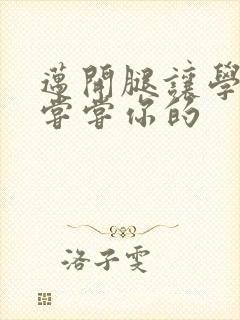 邁開腿讓學
嘗嘗你的
洛子雯